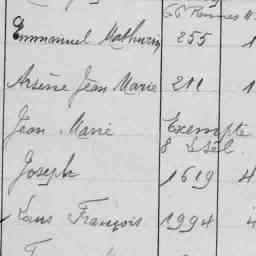 Emmanuel Mathurin 255 1
Arsène Jean Marie 211 1
Jean Marie Exempté
Joseph 1619 4
Louis François 1994 4